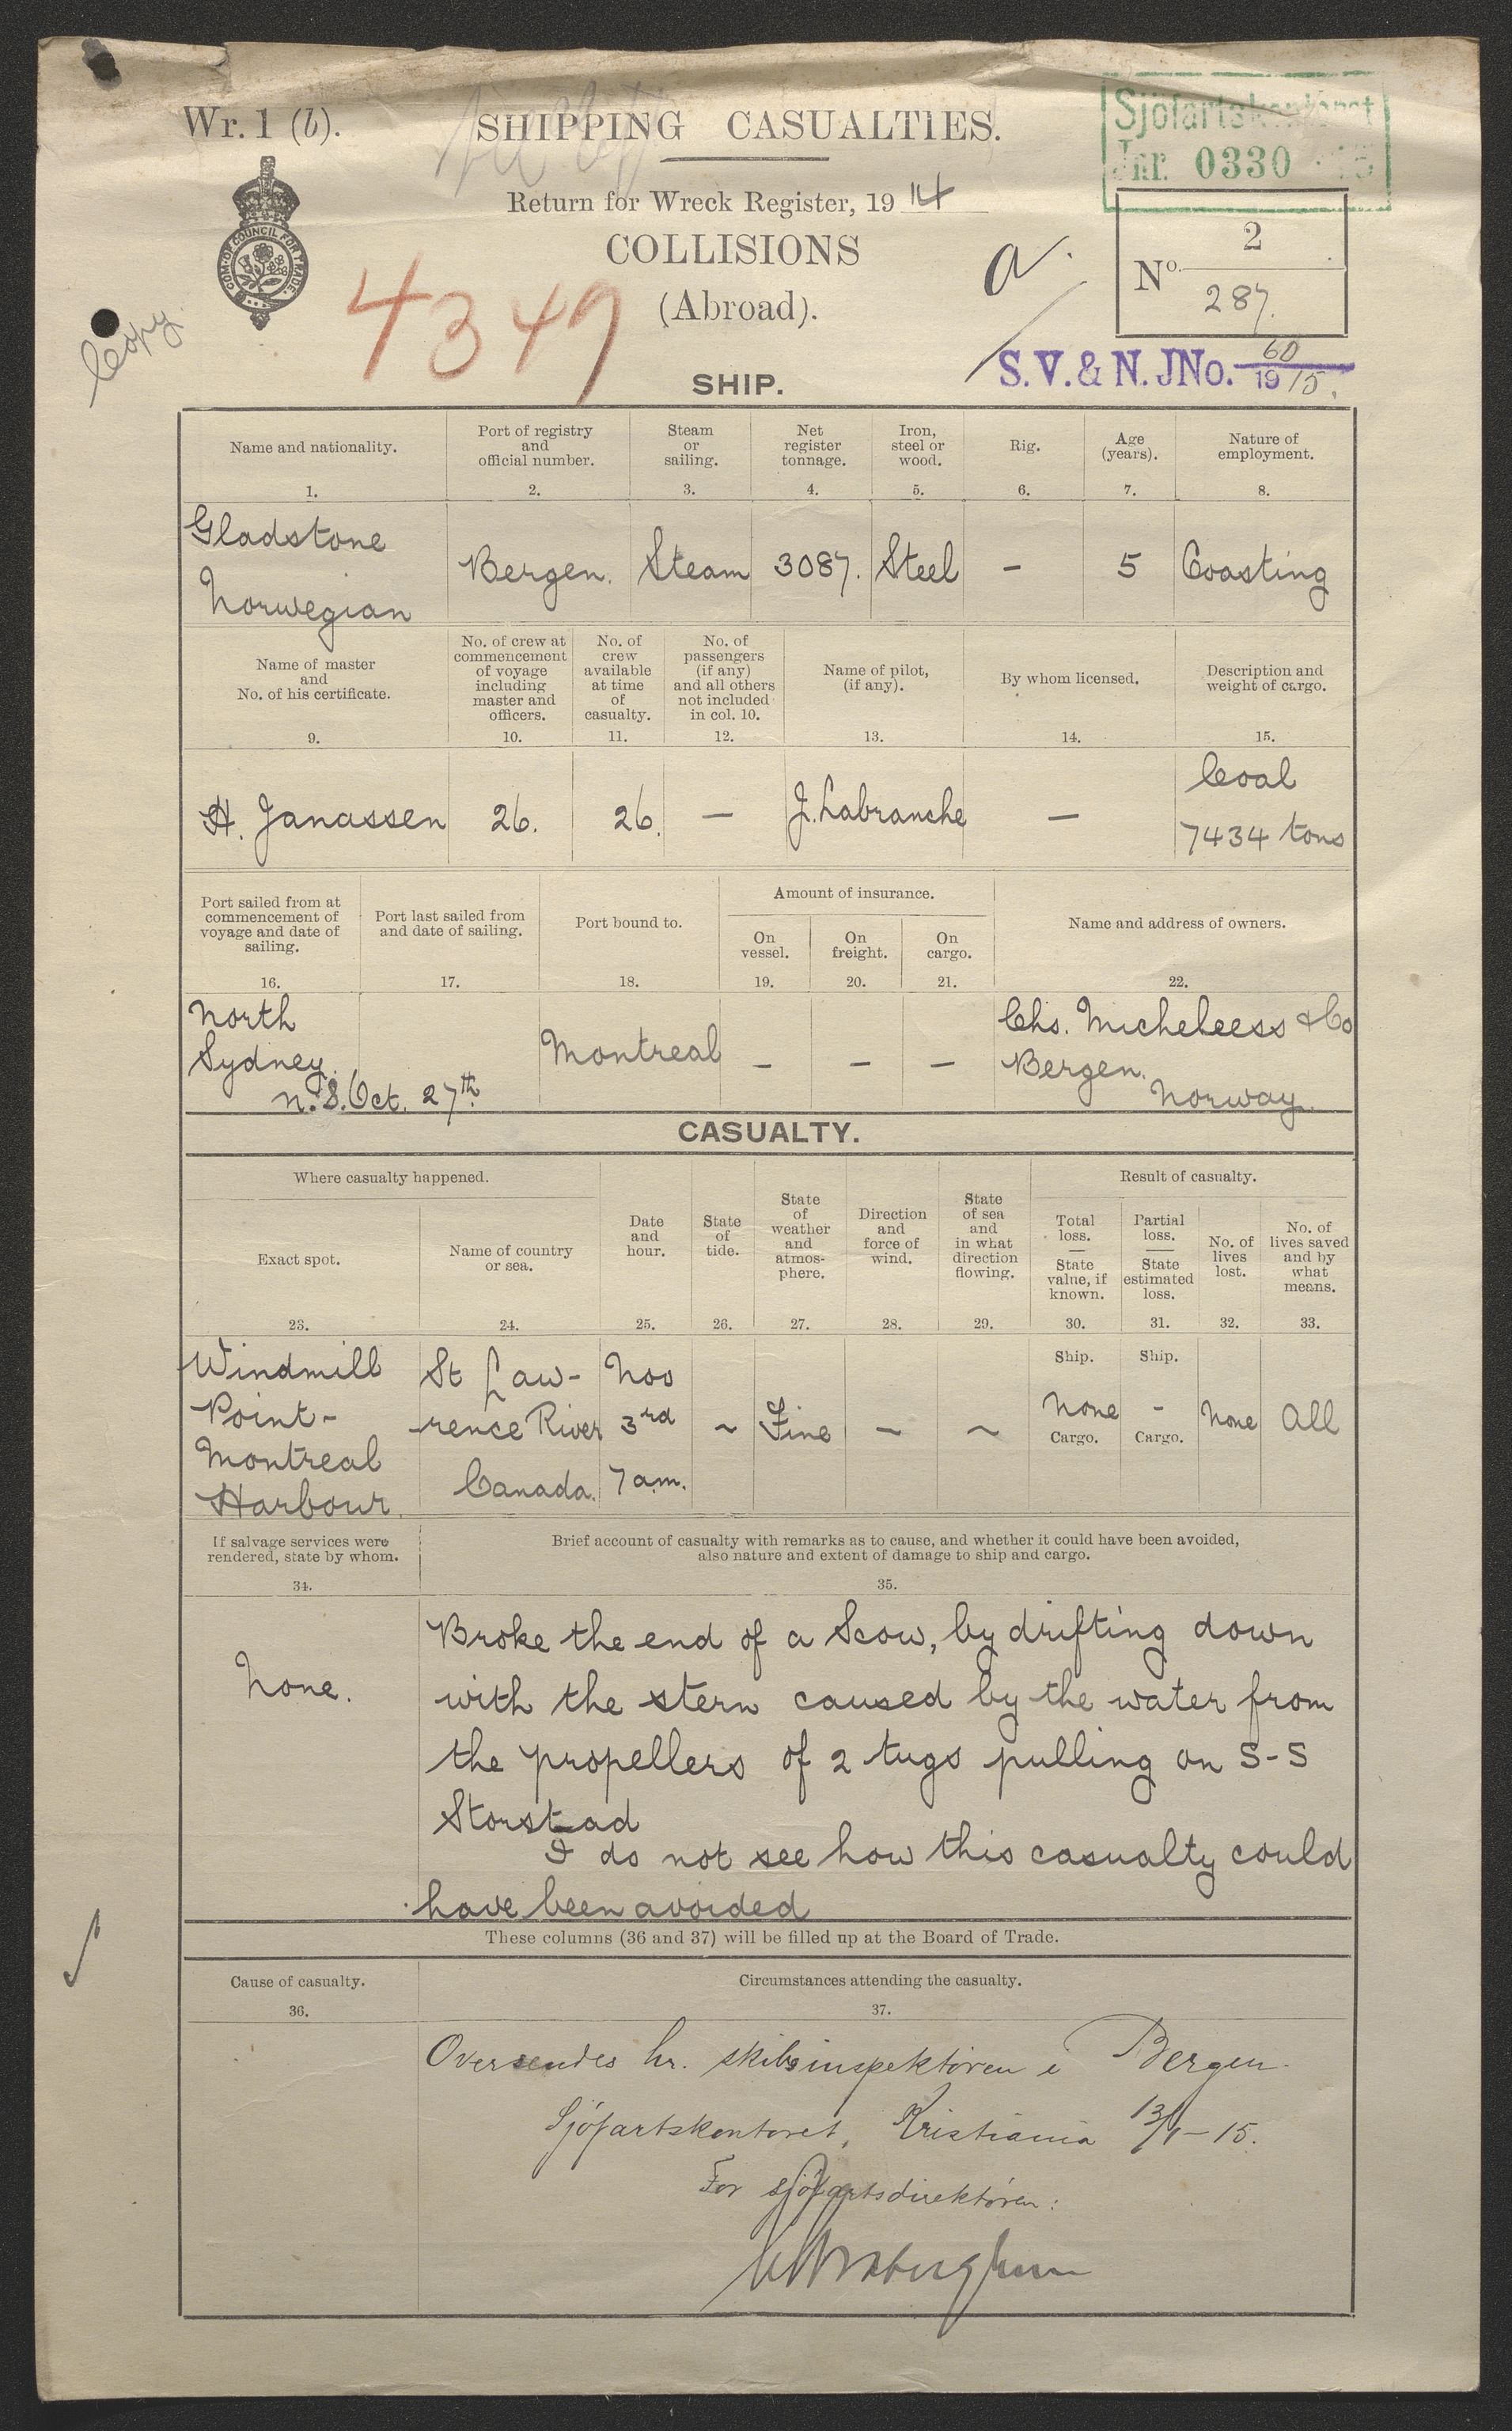 Wr. 1 (b).
SHIPPING CASUALTIES.
Sjöfartskontoret
Jnr. 0330 15
Return for Wreck Register, 1914
COLLISIONS
(Abroad).
COM. OF COUNCIL FOR TRADE.
Copy
4349
a.
No. 2
287.
S. V. & N. JNo. 60
1915.
SHIP.
Name and nationality.
1.
Port of registry
and
official number.
2.
Steam
or
sailing.
3.
Net
register
tonnage.
4.
Iron,
steel or
wood.
5.
Rig.
6.
Age
(years).
7.
Nature of
employment.
8.
Gladstone
Norwegian
Bergen.
Steam
3087.
Steel
-
5
Coasting
Name of master
and
No. of his certificate.
9.
No. of crew at
commencement
of voyage
including
master and
officers.
10.
No. of
crew
available
at time
of
casualty.
11.
No. of
passengers
(if any)
and all others
not included
in col. 10.
12.
Name of pilot,
(if any).
13.
By whom licensed.
14.
Description and
weight of cargo.
15.
H. Janassen
26.
26.
-
J. Labranche
-
Coal
7434 tons
Port sailed from at
commencement of
voyage and date of
sailing.
16.
Port last sailed from
and date of sailing.
17.
Port bound to.
18.
Amount of insurance.
On
vessel.
19.
On
freight.
20.
On
cargo.
21.
Name and address of owners.
22.
North
Sydney.
N.S. Oct. 27th
Montreal
-
-
-
Chs. Micheleess & Co
Bergen.
Norway.
CASUALTY.
Where casualty happened.
Exact spot.
23.
Name of country
or sea.
24.
Date
and
hour.
25.
State
of
tide.
26.
State
of
weather
and
atmos-
phere.
27.
Direction
and
force of
wind.
28.
State
of sea
and
in what
direction
flowing.
29.
Result of casualty.
Total
loss.
State
value, if
known.
30.
Partial
loss.
State
estimated
loss.
31.
No. of
lives
lost.
32.
No. of
lives saved
and by
what
means.
33.
Windmill
Point-
Montreal
Harbour.
St Law-
rence River
Canada.
Nov
3rd
7 a.m.
~
Fine
-
~
Ship.
None
Cargo.
Ship.
-
Cargo.
None
All
If salvage services were
rendered, state by whom.
34.
Brief account of casualty with remarks as to cause, and whether it could have been avoided,
also nature and extent of damage to ship and cargo.
35.
None.
Broke the end of a Scow, by drifting down
with the stern caused by the water from
the propellers of 2 tugs pulling on S-S
Storstad
I do not see how this casualty could
have been avoided
These columns (36 and 37) will be filled up at the Board of Trade.
Cause of casualty.
36.
Circumstances attending the casualty.
37.
Oversendes hr. skibsinspektören i Bergen.
Sjöfartskontoret, Kristiania 13/1-15.
For sjöfartsdirektören: